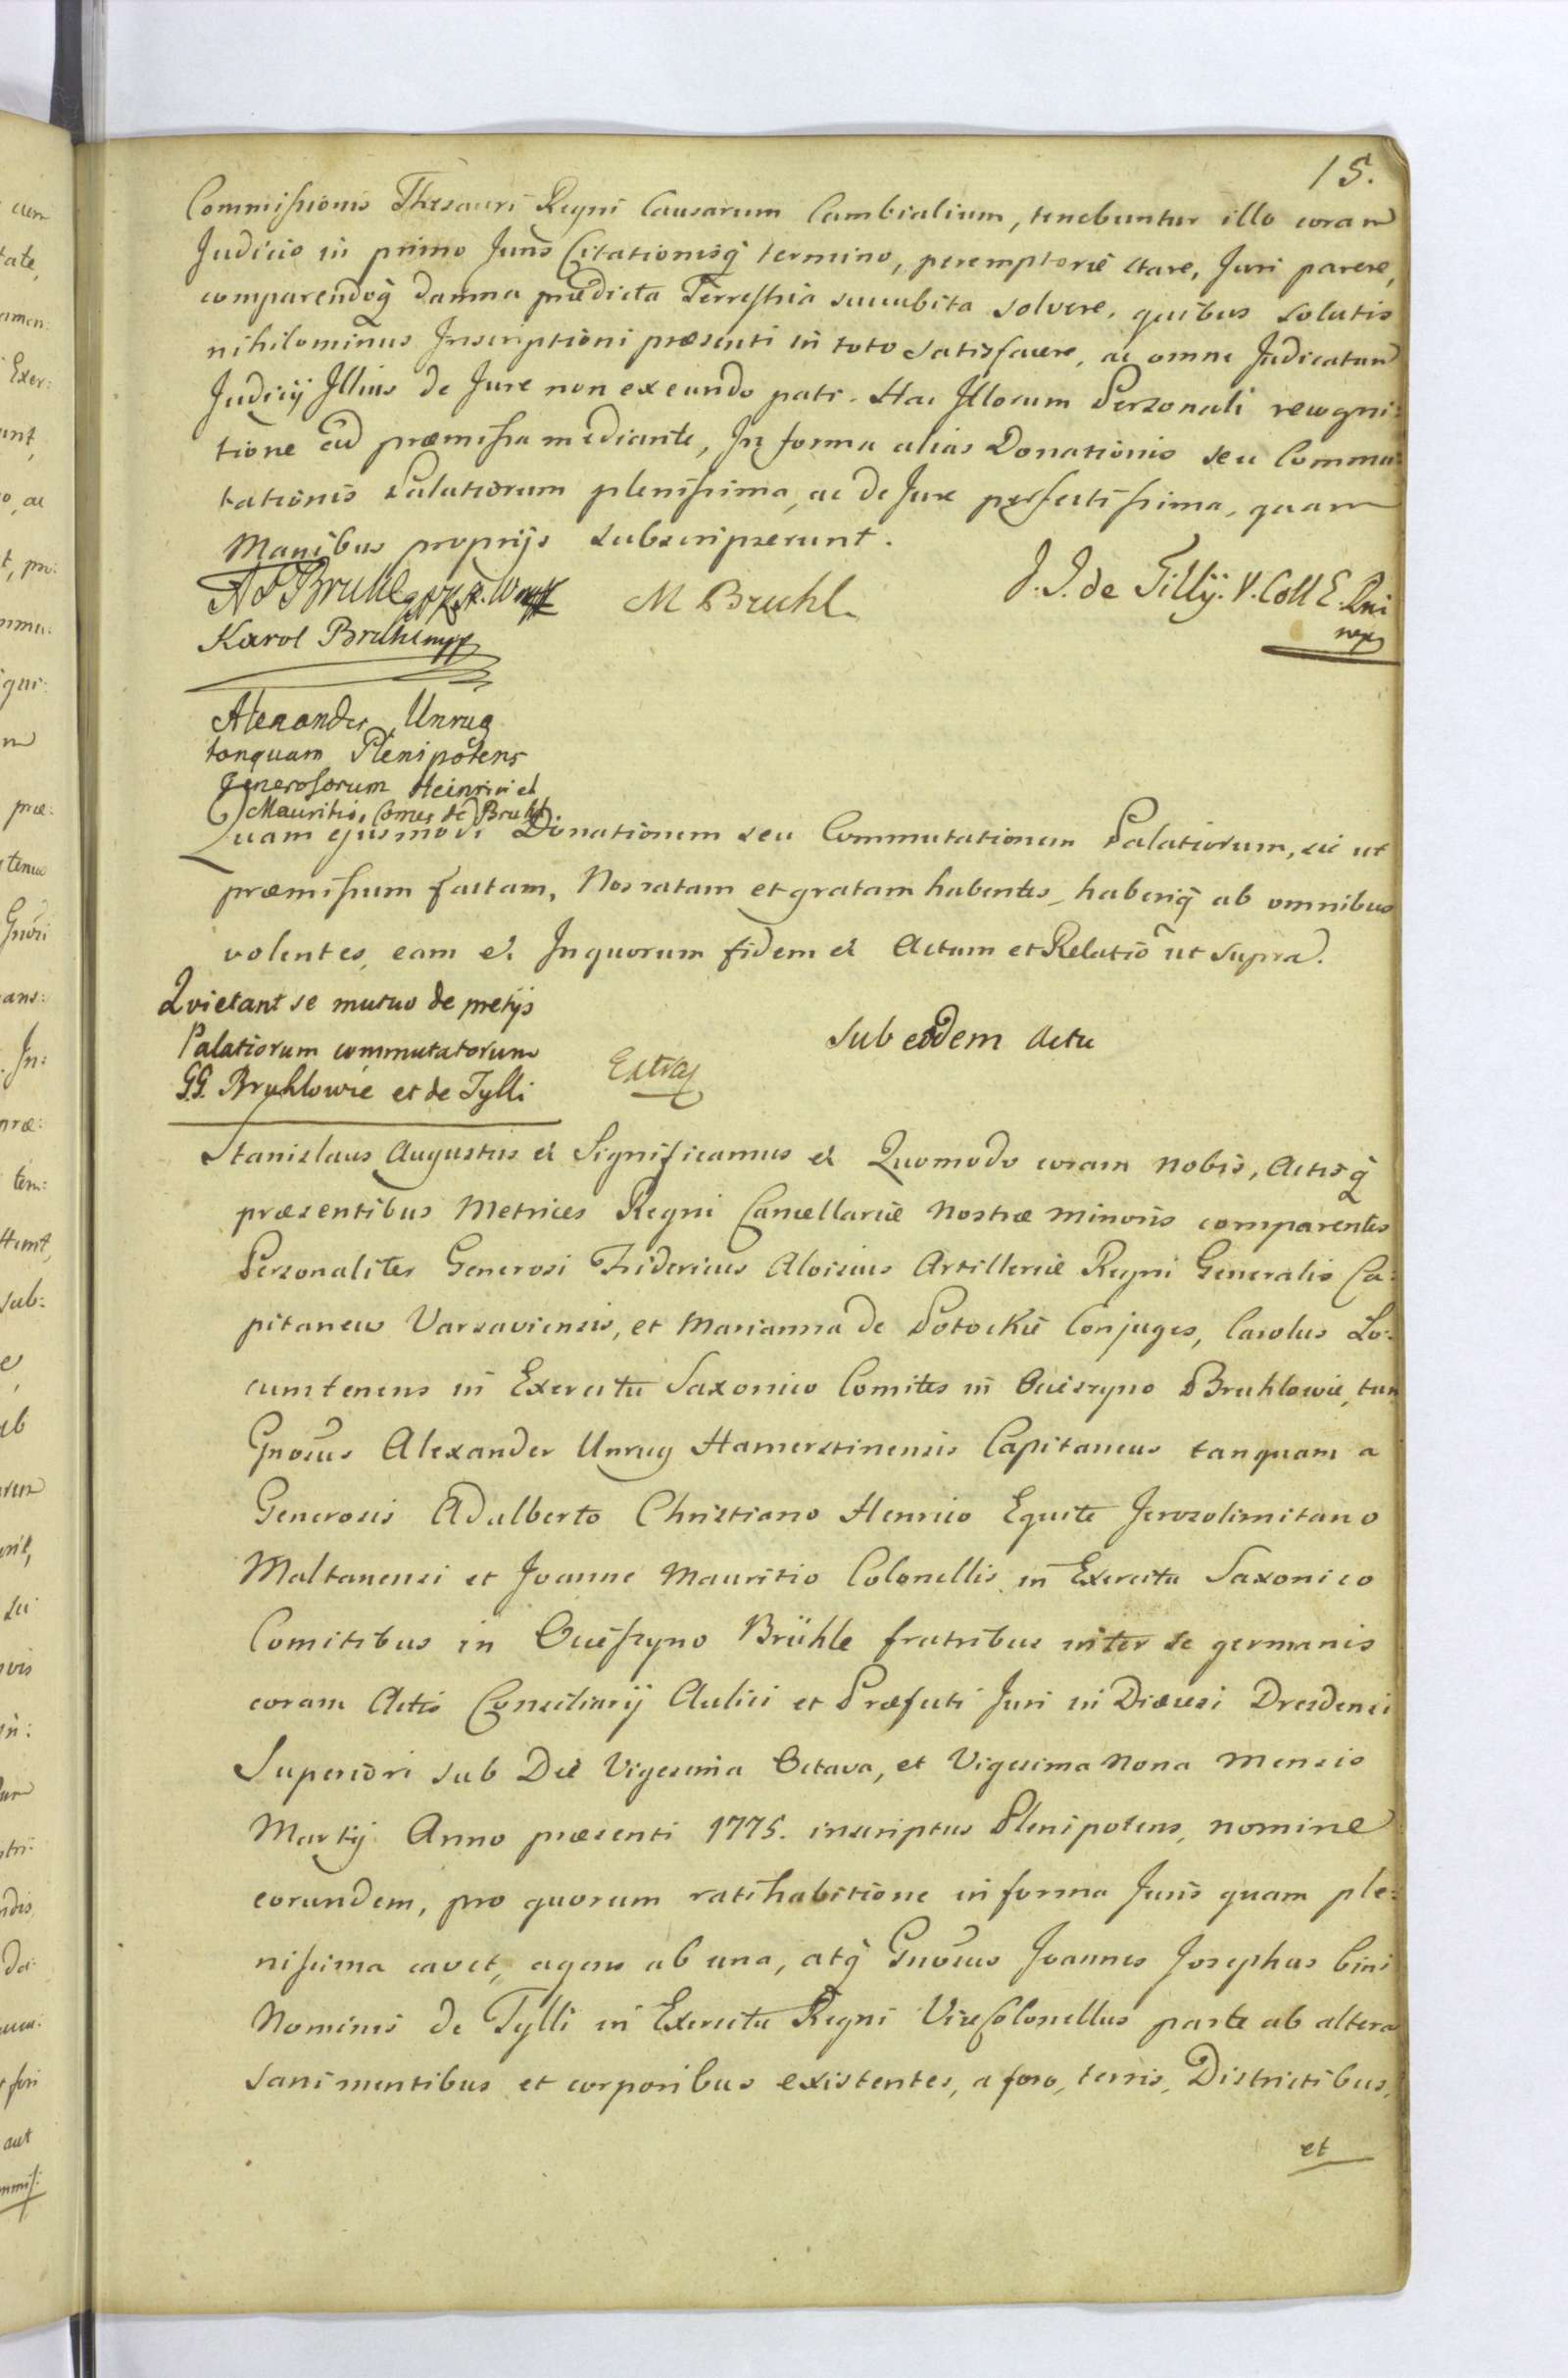 15.
Commissionis Thesauri Regni Causarum Cambialium, tenebuntur illo coram
Judicio in primo Juris Citationisq́ termino, peremptoriè stare, Juri parere,
comparendoq́ damna prædicta Terrestria succubita solvere, quibus solutis
nihilominus Inscriptioni præsenti in toto satisfacere, ac omne Judicatum
Judicij Illius de Jure non exeundo pati. Hac Illorum Personali recogni:
tione ad præmissa mediante, In forma alias Donationis seu Commu:
tationis Palatiorum plenissima, ac de Jure perfectissima, quam
Manibus proprijs subscripserunt.
A F Bruhl
M Bruhl
J. J. de Tillÿ. V. Coll E. Rni
mpp
Karol Bruhl mpp
Alexander Unrug
tanquam Plenipotens
Generosorum Heinrici et
Mauritio, Comes de Bruhl
Quam ejusmodi Donationem seu Commutationem Palatiorum, sic ut
præmissum factam, Nos ratam et gratam habentes, haberiq́ ab omnibus
volentes, eam et. In quorum fidem et Actum et Relatio ut supra.
Quietant se mutuo de pretijs
Palatiorum commutatorum
G.G. Bruhlowie et de Tylli
Extrad
Sub eodem Actu
Stanislaus Augustus et Significamus et Quomodo coram nobis, Actisq́
præsentibus Metrices Regni Cancellariæ Nostræ Minoris comparentes
Personaliter Generosi Fridericus Aloisius Artilleriæ Regni Generalis Ca:
pitaneus Varsaviensis, et Marianna de Potockie Conjuges, Carolus Lo:
cumtenens in Exercitu Saxonico Comites in Ocieszyno Bruhlowie, tum
Gnosus Alexander Unrug Hamerstinensis Capitaneus tanquam a
Generosis Adalberto Christiano Henrico Equite Jerozolimitano
Maltanensi et Joanne Mauritio Colonellis in Exercitu Saxonico
Comitibus in Ocieszyno Brühle fratribus inter se germanis
coram Actis Consiliarij Aulici et Præfecti Juri in Diæcesi Dresdensi
Superiori sub Die Vigesima Octava, et Vigesima Nona Mensis
Martij Anno præsenti 1775. inscriptus Plenipotens, nomine
eorundem, pro quorum ratihabitione in forma Juris quam ple:
nissima cavet, agens ab una, atq́ Gnosus Joannes Josephus bini
Nominis de Tylli in Exercitu Regni ViceColonellus parte ab altera
sani mentibus et corporibus existentes, a foro, terris, Districtibus,
et